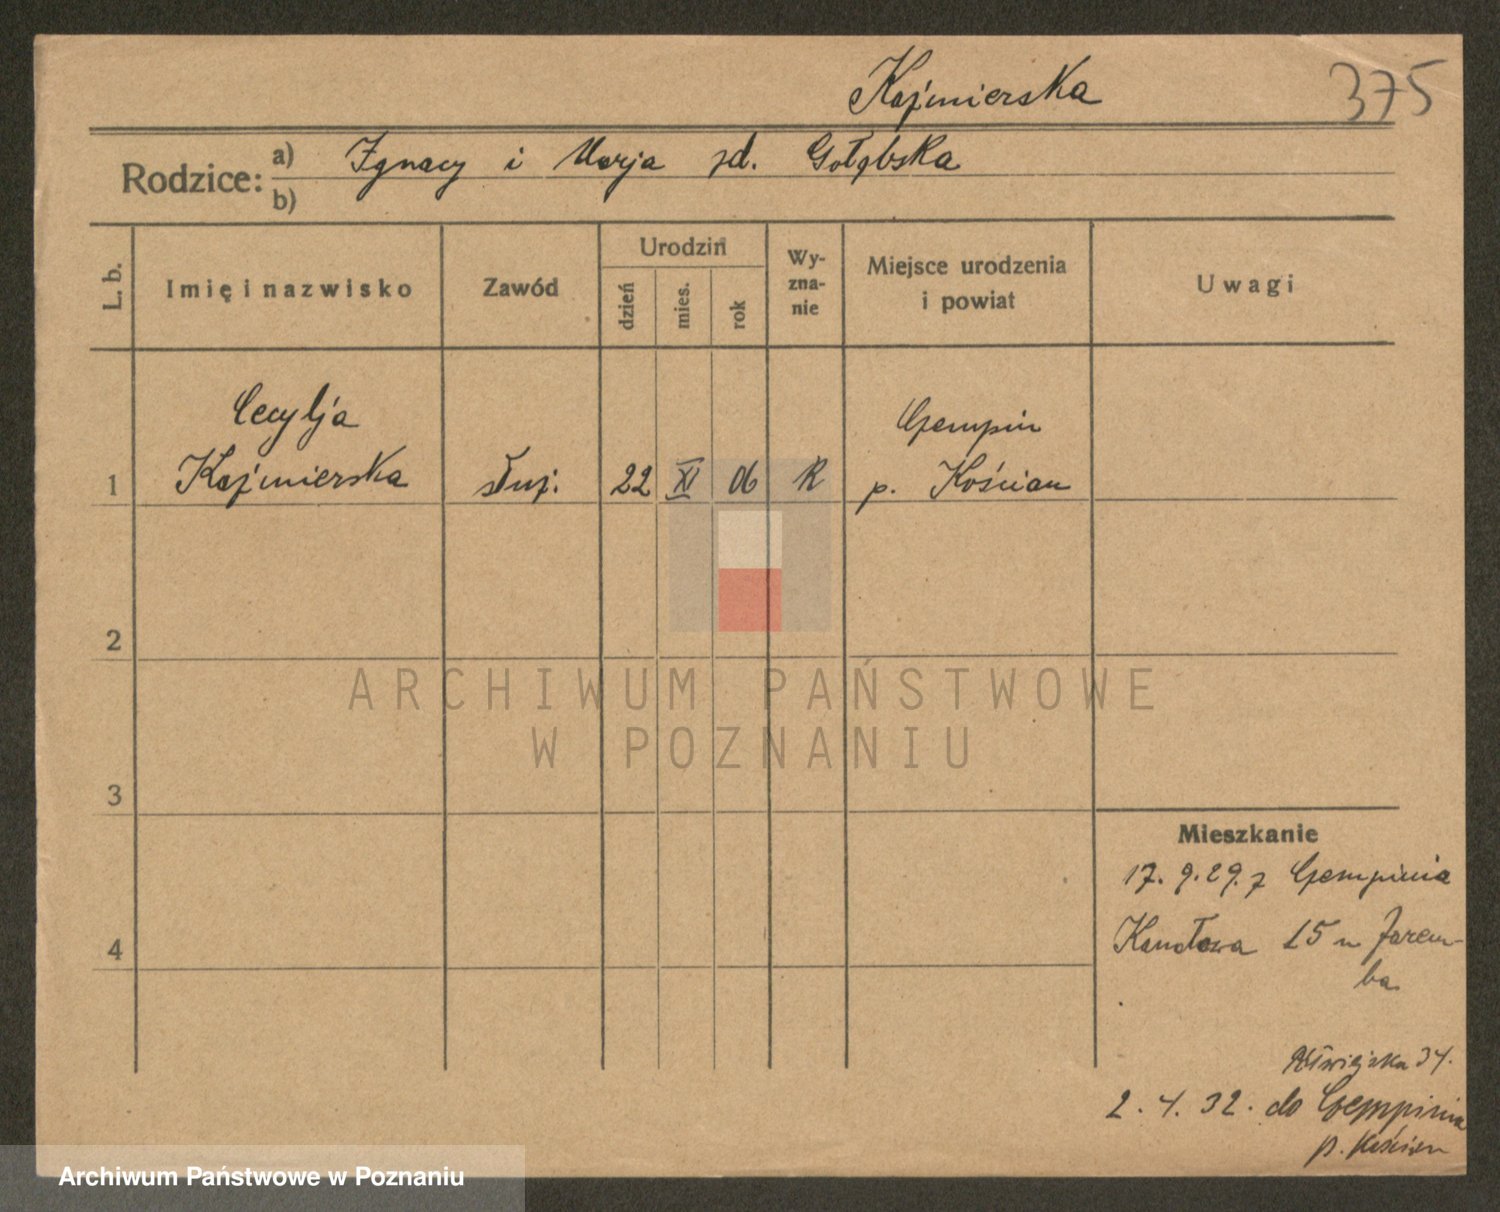 Kaźmierska
375
Rodzice: a) Ignacy i Marja zd. Gołębska
b)
L. b.
Imię i nazwisko
Zawód
Urodzin
dzień
mies.
rok
Wy-
zna-
nie
Miejsce urodzenia
i powiat
Uwagi
Cecylja
Czempin
1 Kaźmierska służ. 22 XI 06 R p. Kościan
2
ARCHIWUM PAŃSTWOWE
W POZNANIU
3
Mieszkanie
17.9.29. z Czempinia
4
15 u Zarem-
ba
34.
2.4.32. do Czempinia
p. Kościan
Archiwum Państwowe w Poznaniu